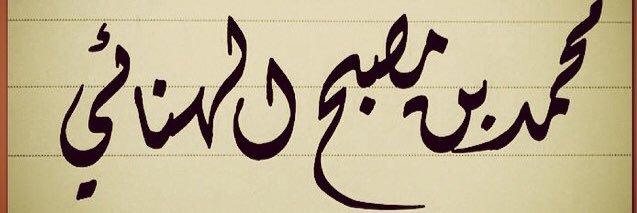 محمد بن مصبح الهنائي